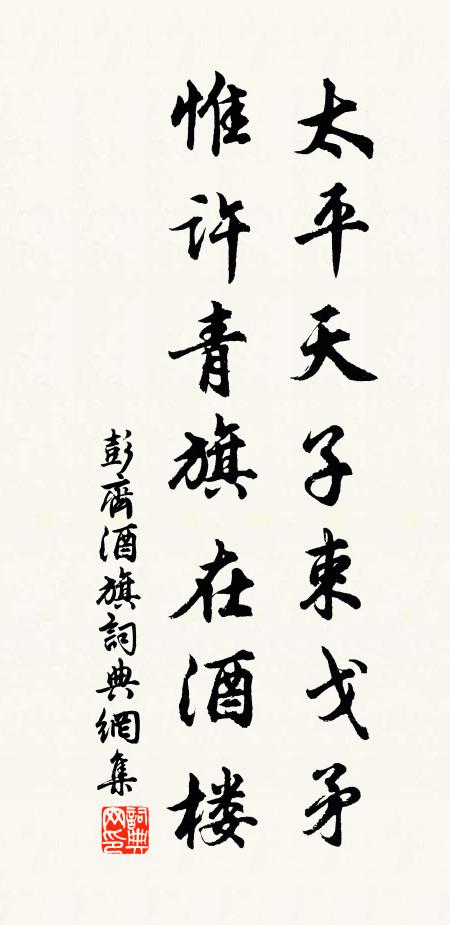 太平天子束戈矛
惟许青旗在酒楼
彭齊酒旗詞典網集
詞典网印